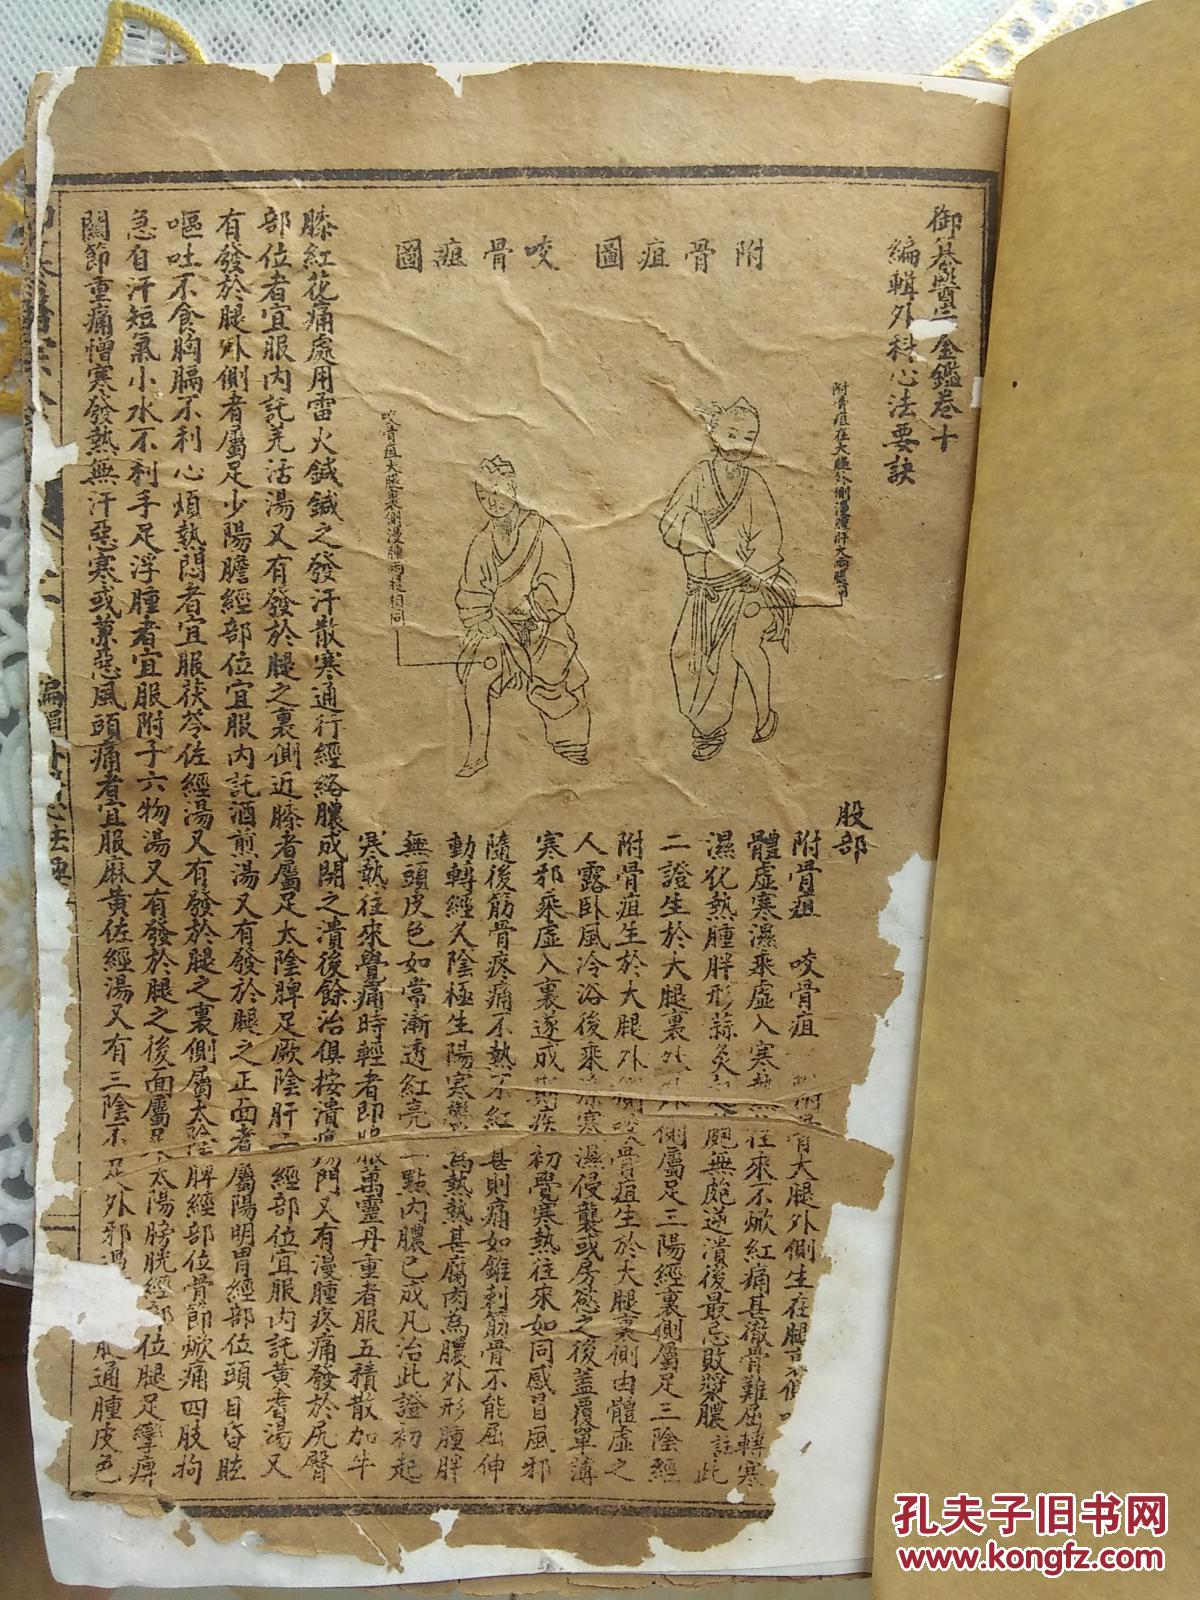 御纂醫宗金鑑卷十
編輯外科心法要訣
附骨疽圖
咬骨疽圖
附骨疽在大腿外側漫腫胖大
咬骨疽大腿裏側漫腫兩褪相同
股部
附骨疽 咬骨疽 附骨大腿外側生在腿
體虛寒濕乘虛入寒熱往來不焮紅痛甚徹骨難屈轉寒
濕化熱腫胖形蒜灸 起皰無皰逆潰後最忌敗漿膿註此
二證生於大腿裏外 外側屬足三陽經裏側屬足三陰經
附骨疽生於大腿外側咬骨疽生於大腿裏側由體虛之
人露臥風冷浴後乘涼寒濕侵襲或房慾之後蓋覆單薄
寒邪乘虛入裏遂成斯疾初覺寒熱往來如同感冒風邪
隨後筋骨疼痛不熱不紅甚則痛如錐刺筋骨不能屈伸
動轉經久陰極生陽寒鬱為熱熱甚腐肉為膿外形腫胖
無頭皮色如常漸透紅亮一點內膿已成凡治此證初起
寒熱往來覺痛時輕者即服萬靈丹重者服五積散加牛
膝紅花痛處用雷火鍼鍼之發汗散寒通行經絡膿成開之潰後餘治俱按潰瘍門又有漫腫疼痛發於尻臀
部位者宜服內託羌活湯又有發於腿之裏側近膝者屬足太陰脾足厥陰肝二經部位宜服內託黃耆湯又
有發於腿外側者屬足少陽膽經部位宜服內託酒煎湯又有發於腿之正面者屬陽明胃經部位頭目昏眩
嘔吐不食胸膈不利心煩熱悶者宜服茯苓佐經湯又有發於腿之裏側屬太陰脾經部位骨節焮痛四肢拘
急自汗短氣小水不利手足浮腫者宜服附子六物湯又有發於腿之後面屬足太陽膀胱經部位腿足攣痹
關節重痛憎寒發熱無汗惡寒或兼惡風頭痛者宜服麻黃佐經湯又有三陰不足外邪過 腿通腫皮色
孔夫子旧书网
www.kongfz.com